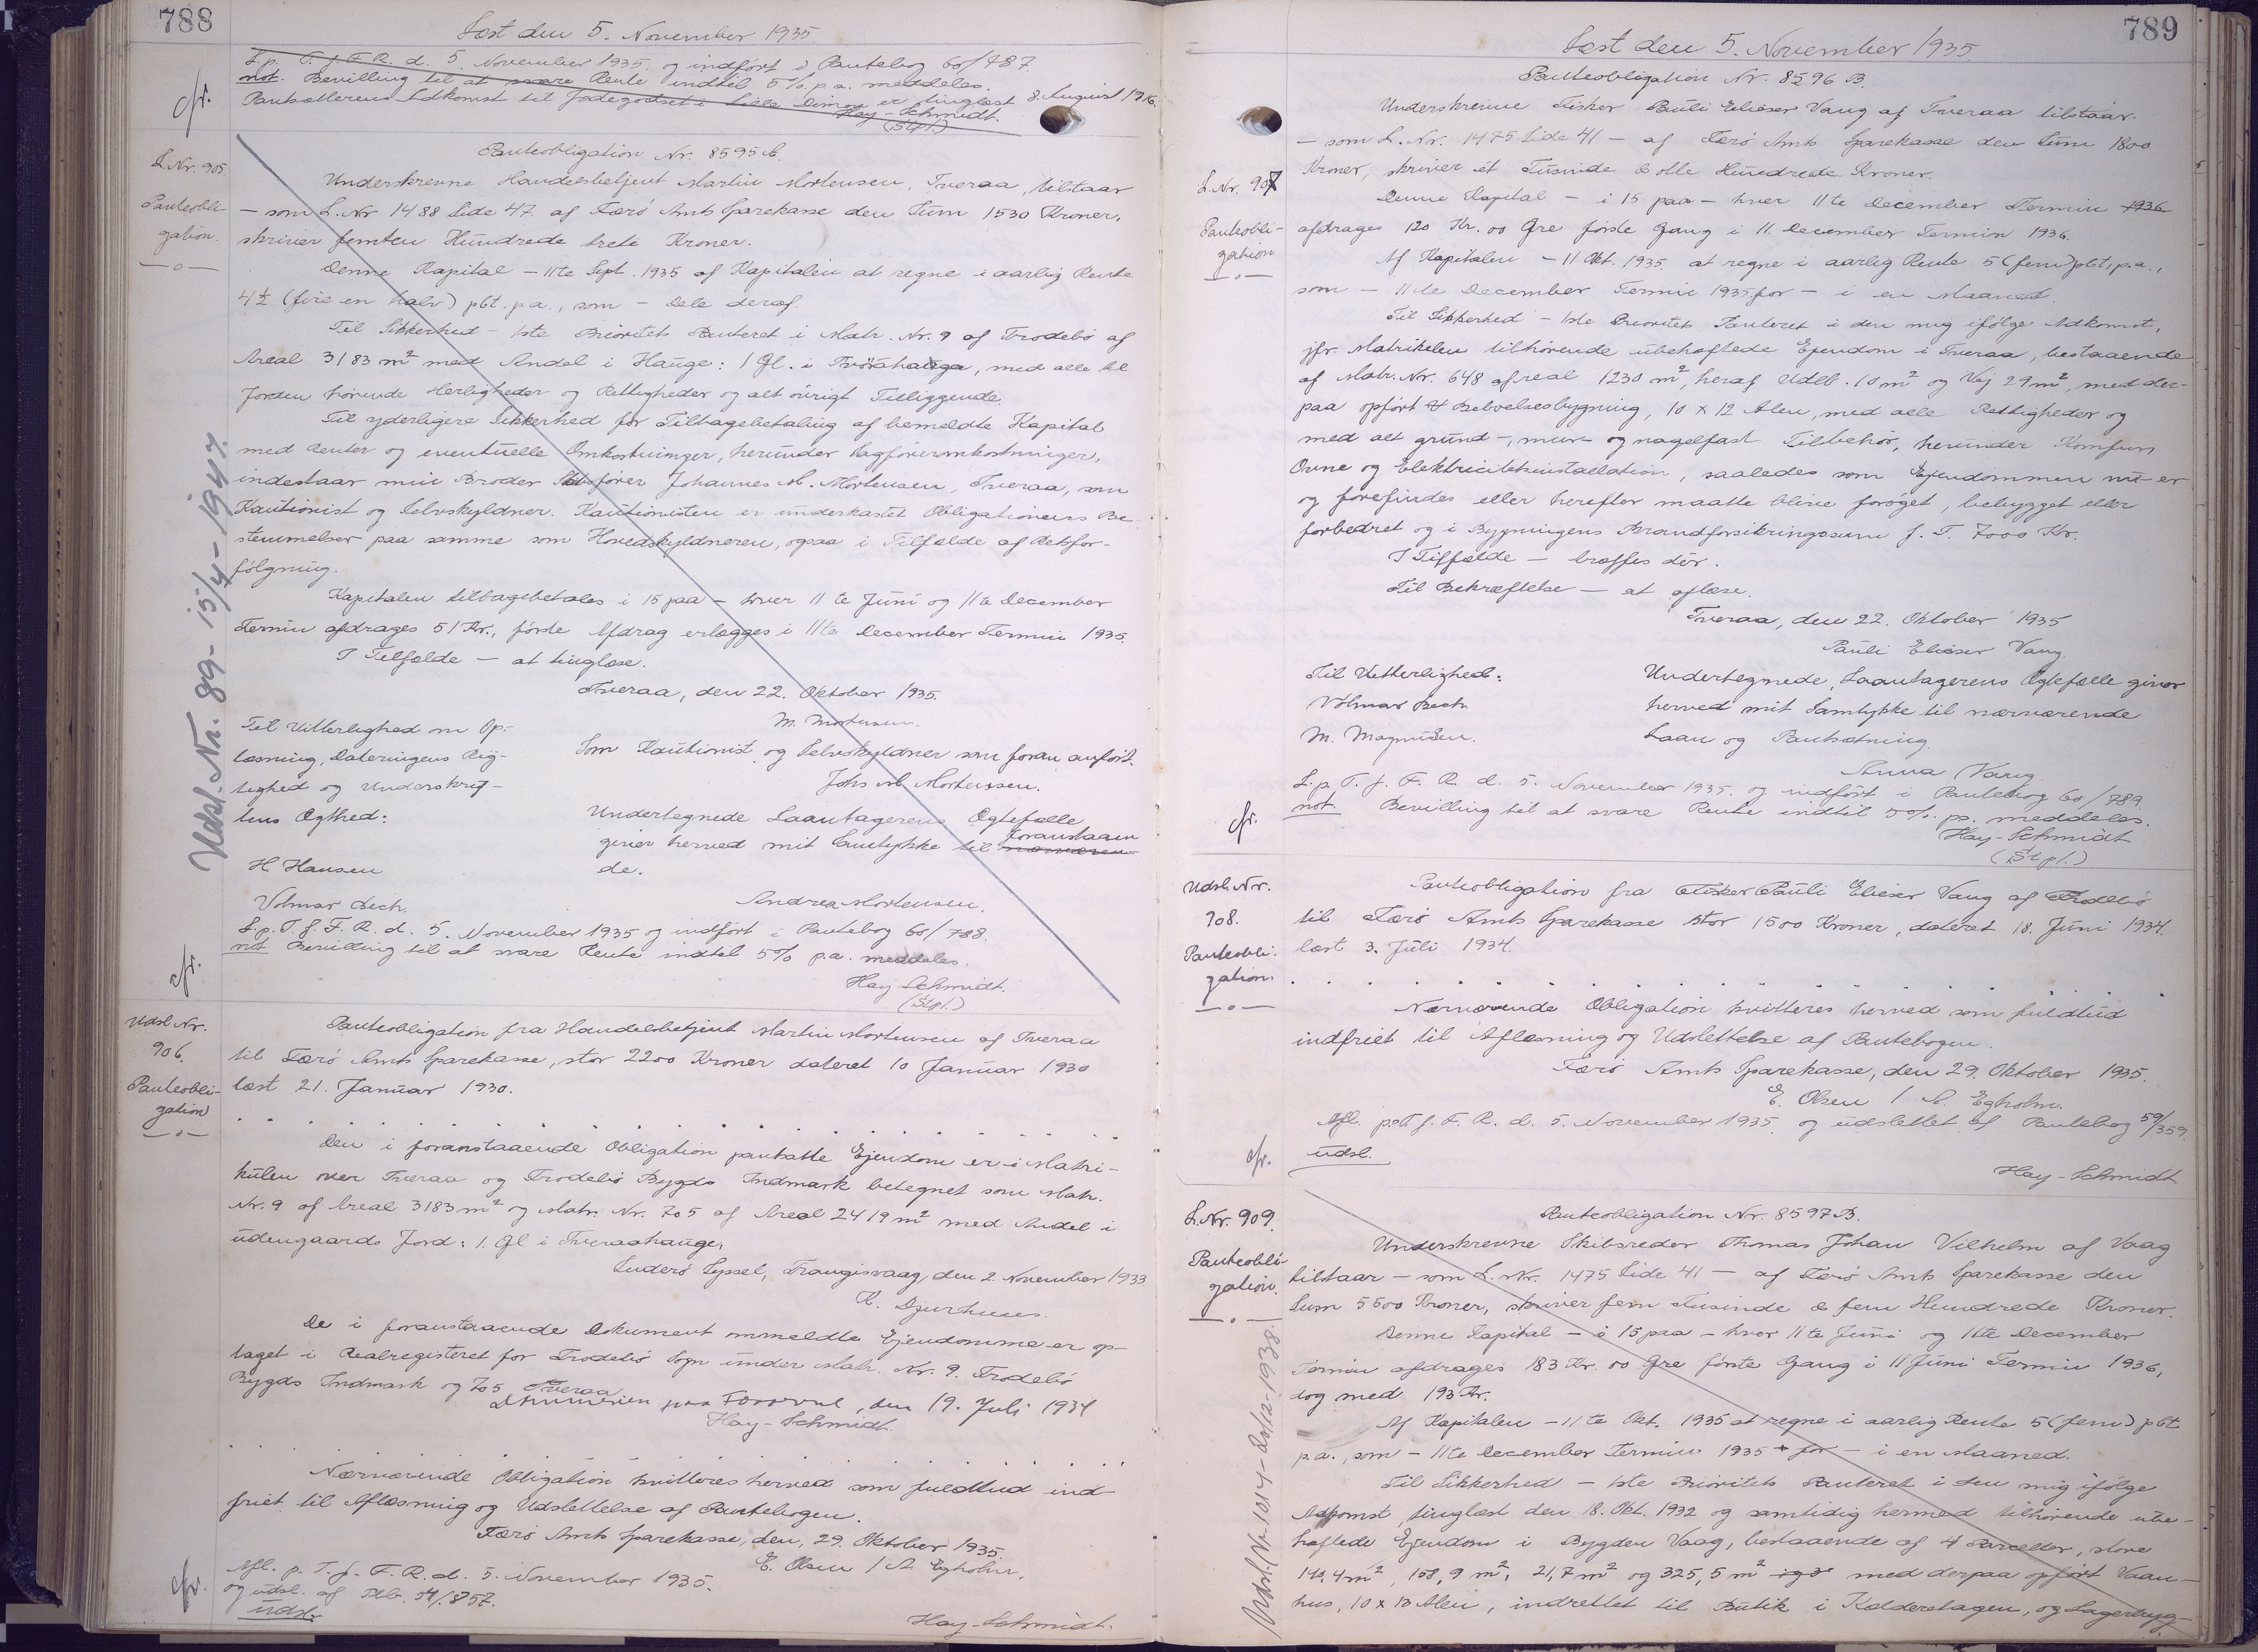 788
Læst den 5. November 1935.
L. p. T. f. F. R. d. 5. November 1935. og indført i Pantebog 60/787.
not. Bevilling til at svare Rente indtil 5% p.a. meddeles.
Pantsætterens Adkomst til Jordegodset i Lille Dimon er tinglæst 8. August 1916.
Hay-Schmidt.
(Stpl.)
cfr.
L. Nr. 905.
Panteobli-
gation.
Panteobligation Nr. 8595 B.
Underskrevne Handelsbetjent Martin Mortensen, Tveraa, tilstaar
— som L. Nr 1488 Side 47. af Færö Amts Sparekasse den Sum 1530 Kroner,
skriver femten Hundrede treti Kroner.
Denne Kapital — 11te Sept. 1935 af Kapitalen at regne i aarlig Rente
4½ (fire en halv) pct. p.a., som — Dele deraf.
Til Sikkerhed — 1ste Prioritets Panteret i Matr. Nr. 9 af Frodebö af
Areal 3183 m² med Andel i Hauge: 1 Gl. i Tvöráhauga, med alle til
Jorden hørende Herligheder og Rettigheder og alt övrigt Tilliggende.
Til yderligere Sikkerhed for Tilbagebetaling af bemeldte Kapital
med Renter og eventuelle Omkostninger, herunder Sagføreromkostninger,
indestaar min Broder Skibsfører Johannes M. Mortensen, Tveraa, som
Kautionist og Selvskyldner. Kautionisten er underkastet Obligationens Be-
stemmelser paa samme som Hovedskyldneren, ogsaa i Tilfælde af Retsfor-
følgning.
Kapitalen tilbagebetales i 15 paa — hver 11te Juni og 11te December
Termin afdrages 51 Kr., første Afdrag erlægges i 11te December Termin 1935.
I Tilfælde — at tinglæse.
Tveraa, den 22. Oktober 1935.
Til Vitterlighed om Op-
læsning, Dateringens Rig-
tighed og Underskrif-
tens Ægthed:
H Hansen
Volmar Bech.
M. Mortensen.
Som Kautionist og Selvskyldner som foran anført.
Johs M Mortensen.
Undertegnede Laantagerens Ægtefælle
giver herved mit Samtykke til foranstaaen
de.
Andrea Mortensen.
L. p. T. f. F. R. d. 5. November 1935 og indført i Pantebog 60/788.
not. Bevilling til at svare Rente indtil 5% p.a. meddeles.
Hay-Schmidt.
(Stpl.)
cfr.
Udsl. Nr. 89 - 15/4 - 1947.
Udsl. Nr.
906.
Panteobli-
gation
Panteobligation fra Handelsbetjent Martin Mortensen af Tveraa
til Færö Amts Sparekasse, stor 2200 Kroner dateret 10 Januar 1930
læst 21. Januar 1930.
Den i foranstaaende Obligation pantsatte Ejendom er i Matri-
kulen over Tveraa og Frodebö Bygds Indmark betegnet som Matr.
Nr. 9 af Areal 3183 m² og Matr. Nr. 705 af Areal 2419 m² med Andel i
udengaards Jord: 1. Gl i Tveraahauge.
Suderö Syssel, Trangisvaag, den 2. November 1933
K. Djurhuus.
De i foranstaaende Dokument ommeldte Ejendomme er op-
taget i Realregisteret for Frodebö Sogn under Matr. Nr. 9. Frodebö
Bygds Indmark og 705 Tveraa
Dommeren paa Færøerne, den 19. Juli 1934
Hay-Schmidt.
Nærværende Obligation kvitteres herved som fuldtud ind-
friet til Aflæsning og Udslettelse af Pantebogen.
Færö Amts Sparekasse, den, 29. Oktober 1935.
E. Olsen / A Egholm.
Afl. p. T. f. F. R. d. 5. November 1935.
og udsl. af Ptb. 54/857.
udsl.
Hay-Schmidt.
cfr.
789
Læst den 5. November 1935.
Panteobligation Nr. 8596 B.
L. Nr. 907
Panteobli-
gation
Underskrevne Fisker Pauli Elieser Vang af Tveraa tilstaar.
— som L. Nr. 1475 Side 41 — af Færö Amts Sparekasse den Sum 1800
Kroner, skriver ét Tusinde & otte Hundrede Kroner.
Denne Kapital — i 15 paa — hver 11te December Termin 1936
afdrages 120 Kr. 00 Øre første Gang i 11. December Termin 1936.
Af Kapitalen — 11 Okt. 1935. at regne i aarlig Rente 5 (fem) pct, p.a.,
som — 11te December Termin 1935 for — i en Maaned.
Til Sikkerhed — 1ste Prioritets Panteret i den mig ifølge Adkomst,
jfr. Matrikelen tilhörende ubehæftede Ejendom i Tveraa, bestaaende
af Matr. Nr. 648 af real 1230 m², heraf Udlb. 10 m² og Vej 29 m², med der-
paa opført Beboelsesbygning, 10 x 12 Alen, med alle Rettigheder og
med alt grund-, mur- og nagelfast Tilbehör, herunder Komfurs
Ovne og Elektricitetsinstallation, saaledes som Ejendommen nu er
og forefindes eller herefter maatte blive forøget, bebygget eller
forbedret og i Bygningens Brandforsikringssum f. T. 7000 Kr.
I Tilfælde — træffes dér.
Til Bekræftelse — at aflæse.
Tveraa, den 22. Oktober 1935
Pauli Elieser Vang.
Til Vitterlighed:
Volmar Bech
M. Magnussen.
Undertegnede, Laantagerens Ægtefælle giver
herved mit Samtykke til nærværende
Laan og Pantsætning.
Anna Vang.
L. p. T. f. F. R. d. 5. November 1935. og indført i Pantebog 60/789.
not. Bevilling til at svare Rente indtil 5% pa. meddeles.
Hay-Schmidt
(Stpl.)
cfr.
Udsl. Nr.
908.
Panteobli-
gation.
Panteobligation fra Fisker Pauli Elieser Vang af Frodebö
til Færö Amts Sparekasse stor 1500 Kroner, dateret 18. Juni 1934.
læst 3. Juli 1934.
Nærværende Obligation kvitteres herved som fuldtud
indfriet til Aflæsning og Udslettelse af Pantebogen.
Færö Amts Sparekasse, den 29. Oktober 1935.
E. Olsen / A. Egholm.
Afl. p. T. f. F. R. d. 5. November 1935. og udslettet af Pantebog 59/359.
udsl.
Hay-Schmidt
cfr.
L. Nr. 909.
Panteobli-
gation.
Panteobligation Nr. 8597 B.
Underskrevne Skibsreder Thomas Johan Vilhelm af Vaag
tilstaar — som L. Nr. 1475 Side 41 — af Færö Amts Sparekasse den
Sum 5500 Kroner, skriver fem Tusinde & fem Hundrede Kroner.
Denne Kapital — i 15 paa — hver 11te Juni og 11te December
Termin afdrages 183 Kr. 00 Øre første Gang i 11 Juni Termin 1936,
dog med 193 Kr.
Af Kapitalen — 11te Okt. 1935 at regne i aarlig Rente 5 (fem) pct
p.a., som — 11te December Termin 1935 for — i en Maaned.
Til Sikkerhed — 1ste Prioritets Panteret i den mig ifølge
Adkomst, tinglæst den 18. Okt. 1932 og samtidig hermed tilhørende ube-
hæftede Ejendom i Bygden Vaag, bestaaende af 4 Parceller, store
140,4 m², 108,9 m², 21,7 m² og 325,5 m² med derpaa opført Vaan-
hus, 10 x 13 Alen, indrettet til Butik i Kælderetagen, og Lagerbyg-
Udsl. Nr 1014 - 20/12 - 1938